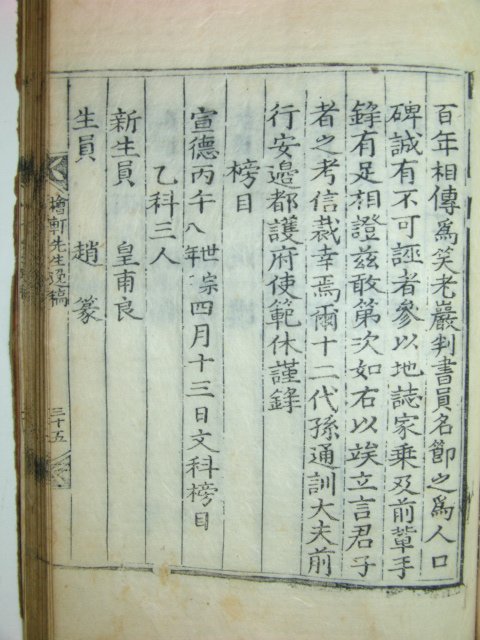 百年相傳爲笑老巖判書員名節之爲人口
碑誠有不可誣者參以地誌家乘及前輩手
錄有足相證玆敢第次如右以竢立言君子
者之考信裁幸焉爾十二代孫通訓大夫前
行安邊都護府使範休謹錄
榜目
宣德丙午八年世宗四月十三日文科榜目
乙科三人
新生員 皇甫良
生員 趙篆
檜軒先生逸稿
三十五